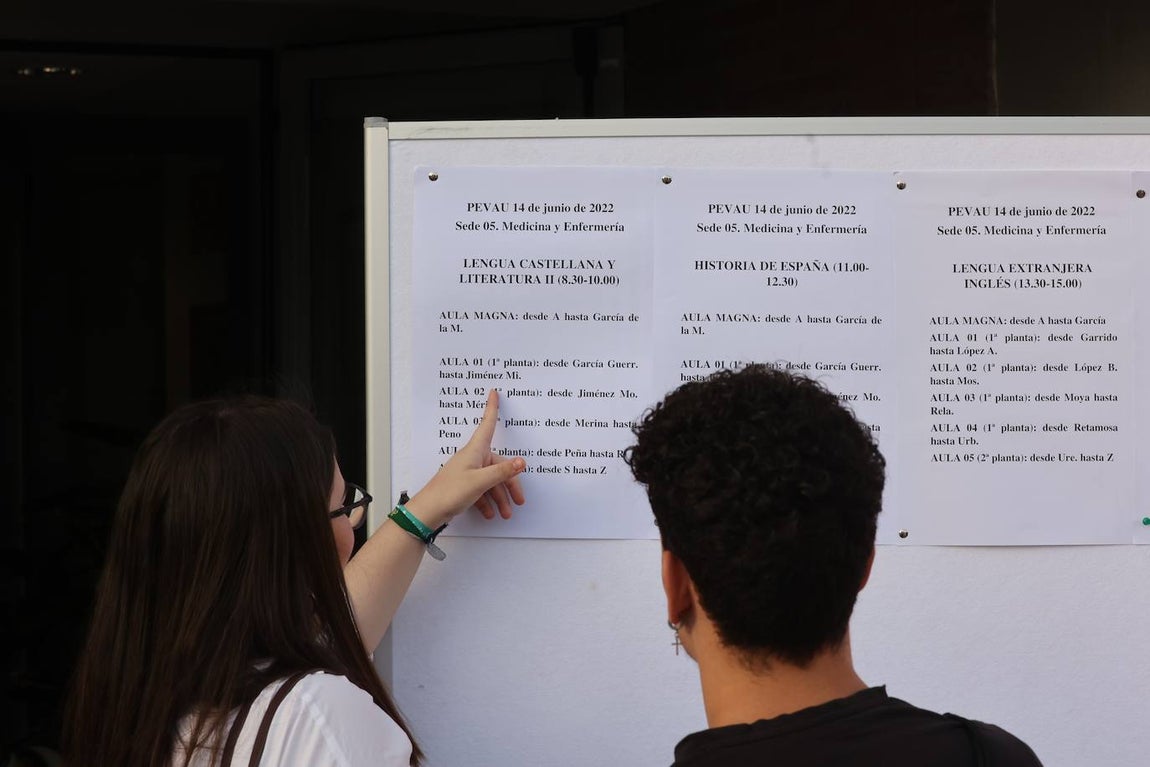 PEVAU 14 de junio de 2022
Sede 05. Medicina y Enfermería
LENGUA CASTELLANA Y
LITERATURA II (8.30-10.00)
AULA MAGNA: desde A hasta García de
la M.
AULA 01 (1ª planta): desde García Guerr.
hasta Jiménez Mi.
AULA 02 planta): desde Jiménez Mo.
hasta
AULA planta): desde Merina hasta
Peno
planta): desde Peña hasta
desde S hasta Z
PEVAU 14 de junio de 2022
Sede 05. Medicina y Enfermería
HISTORIA DE ESPAÑA (11.00-
12.30)
AULA MAGNA: desde A hasta García de
la M.
AULA 01 (1ª planta): desde García Guerr.
Mo.
PEVAU 14 de junio de 2022
Sede 05. Medicina y Enfermería
LENGUA EXTRANJERA
INGLÉS (13.30-15.00)
AULA MAGNA: desde A hasta García
AULA 01 (1ª planta): desde Garrido
hasta López A.
AULA 02 (1ª planta): desde López B.
hasta Mos.
AULA 03 (1ª planta): desde Moya hasta
Rela.
AULA 04 (1ª planta): desde Retamosa
hasta Urb.
AULA 05 (2ª planta): desde Ure. hasta Z